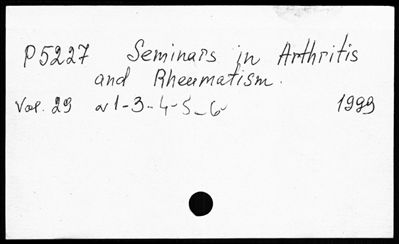 P5227 Seminars in Arthritis
and Rheumatism.
Vol. 29 N 1-3-4-5-6 1999